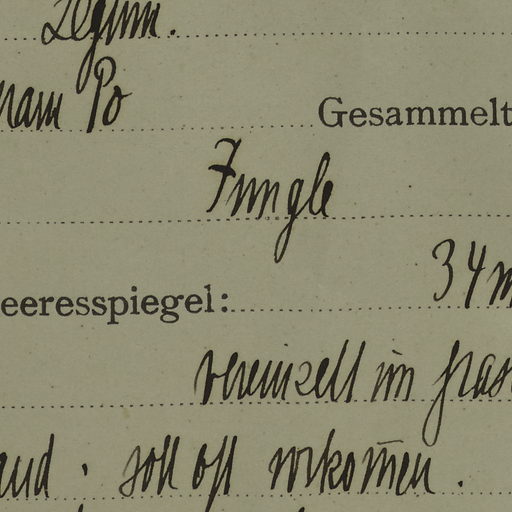 Legum.
nam Po Gesammelt
Jungle
eeresspiegel: 34 m
vereinzelt im gras
and . soll oft vorkom̄en .